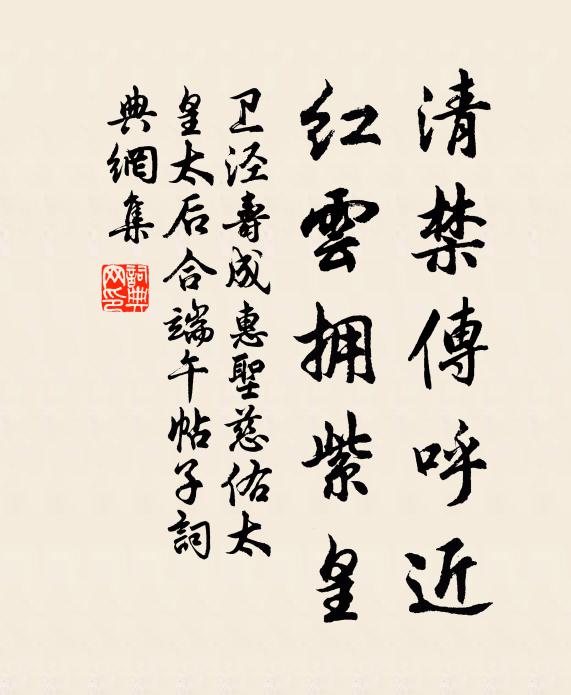 清禁傳呼近
紅雲拥紫皇
卫泾壽成惠聖慈佑太
皇太后合端午帖子詞
典網集
詞典网印